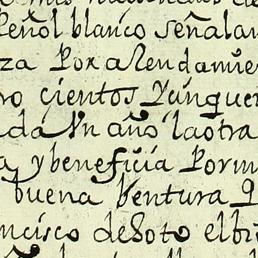 Peñol blanco señalan
za Por arrendamie
ro çientos Yunque
da Un año, la otra
a y beneficia Porm
buena bentura q
ncisco de Soto el bi